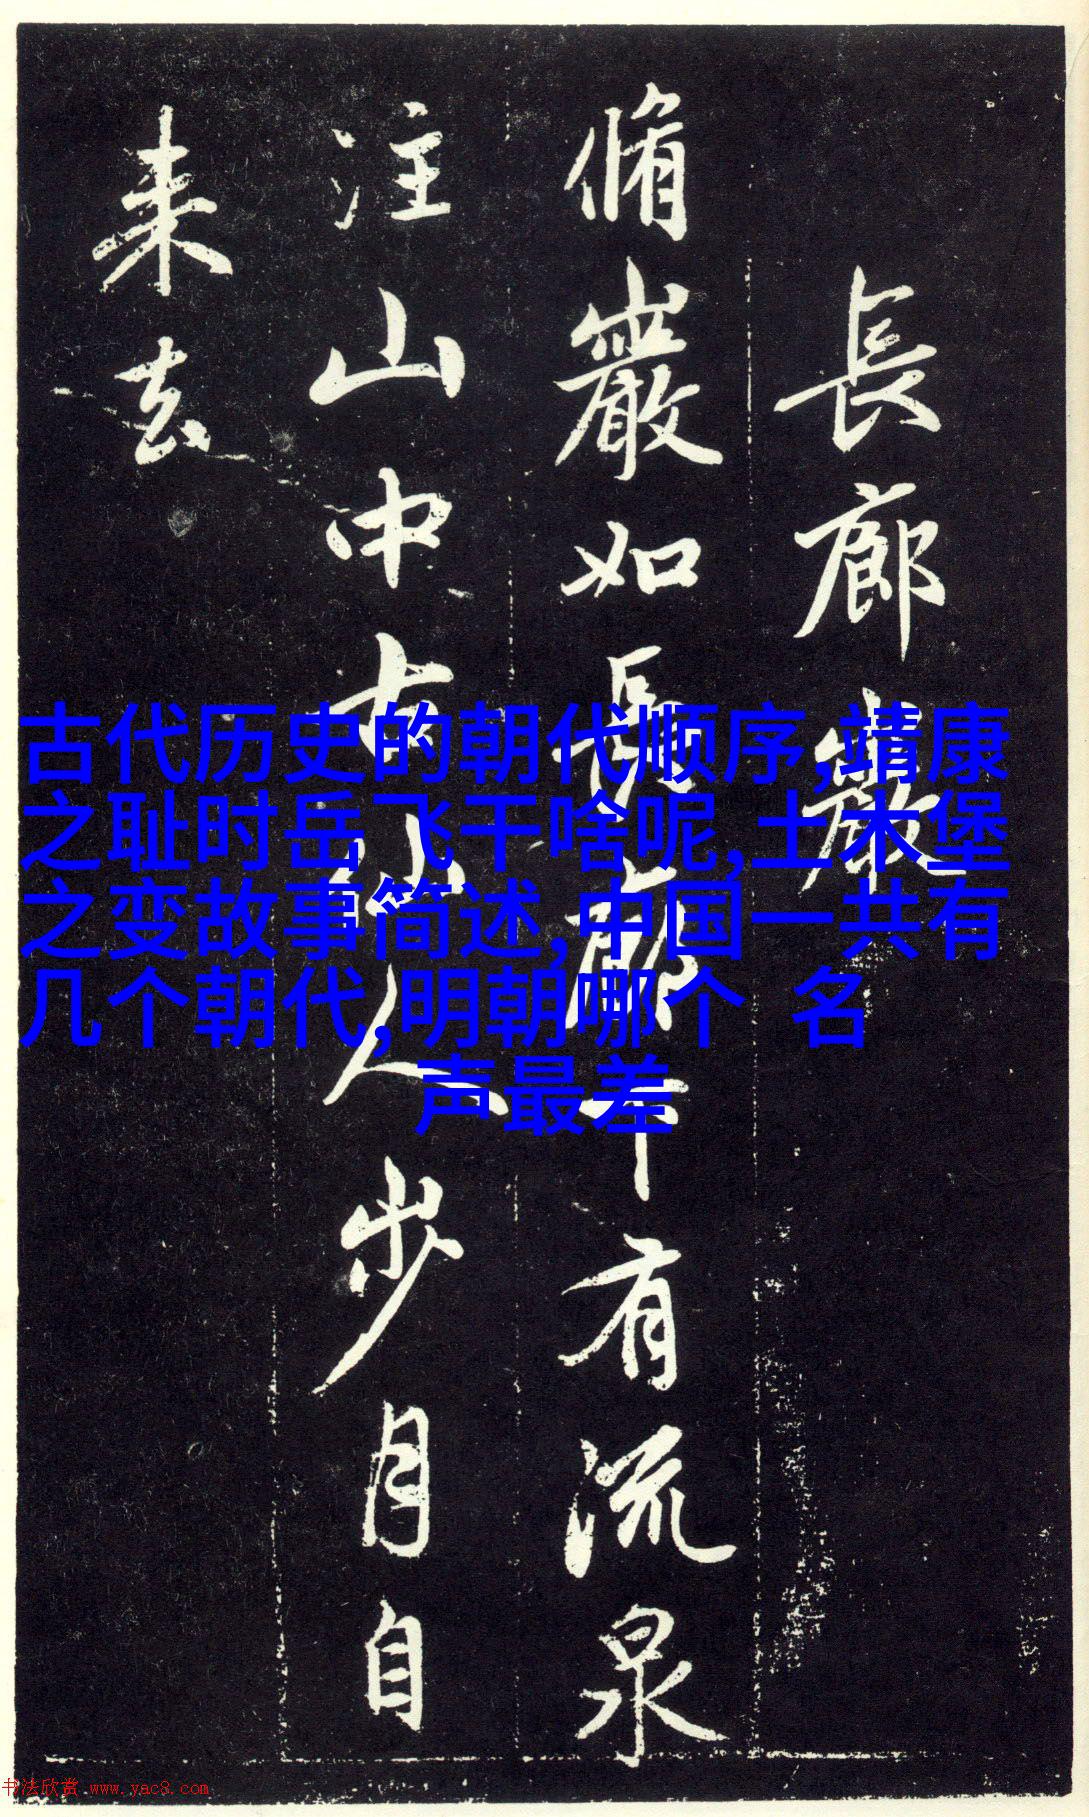 長廊巖
脩巖如長廊下有流泉
注山中古仙人步月自
来去
古代历史的朝代顺序,靖康
之耻时岳飞干啥呢,土木堡
之变故事简述,中国一共有
几个朝代,明朝哪个 名
声最差
书法欣赏 www.yac8.com